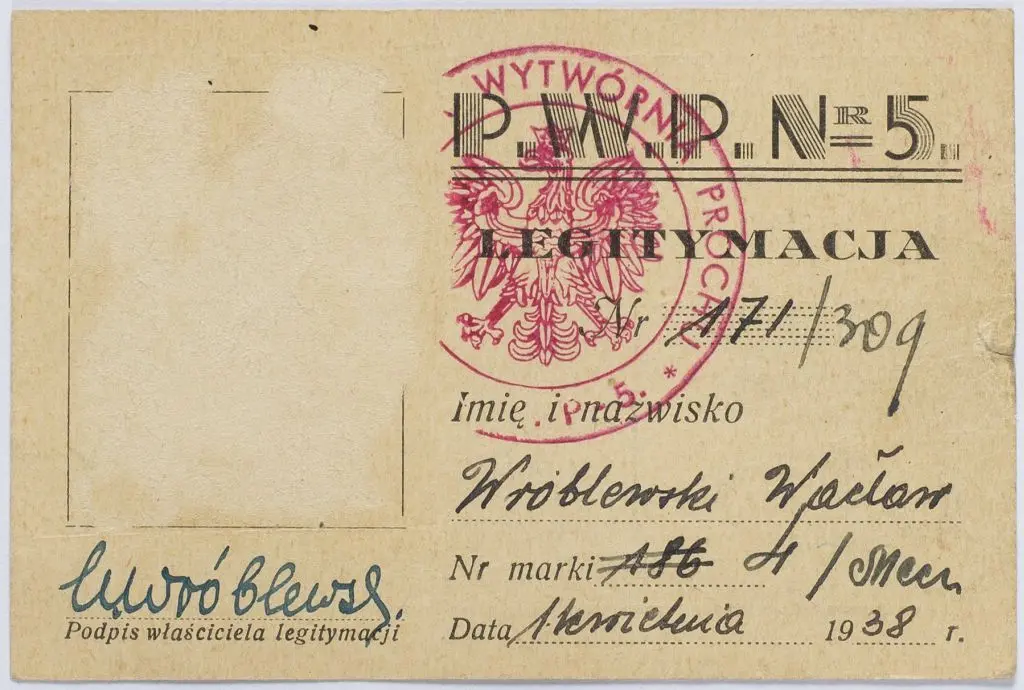 WYTWÓRNIA PROCHU
P. 5. *
P.W.P. NR 5.
LEGITYMACJA
Nr 171/309
Imię i nazwisko
Wróblewski Wacław
Nr marki 186 4 /
Data 1 kwietnia 1938 r.
Wróblewsk
Podpis właściciela legitymacji